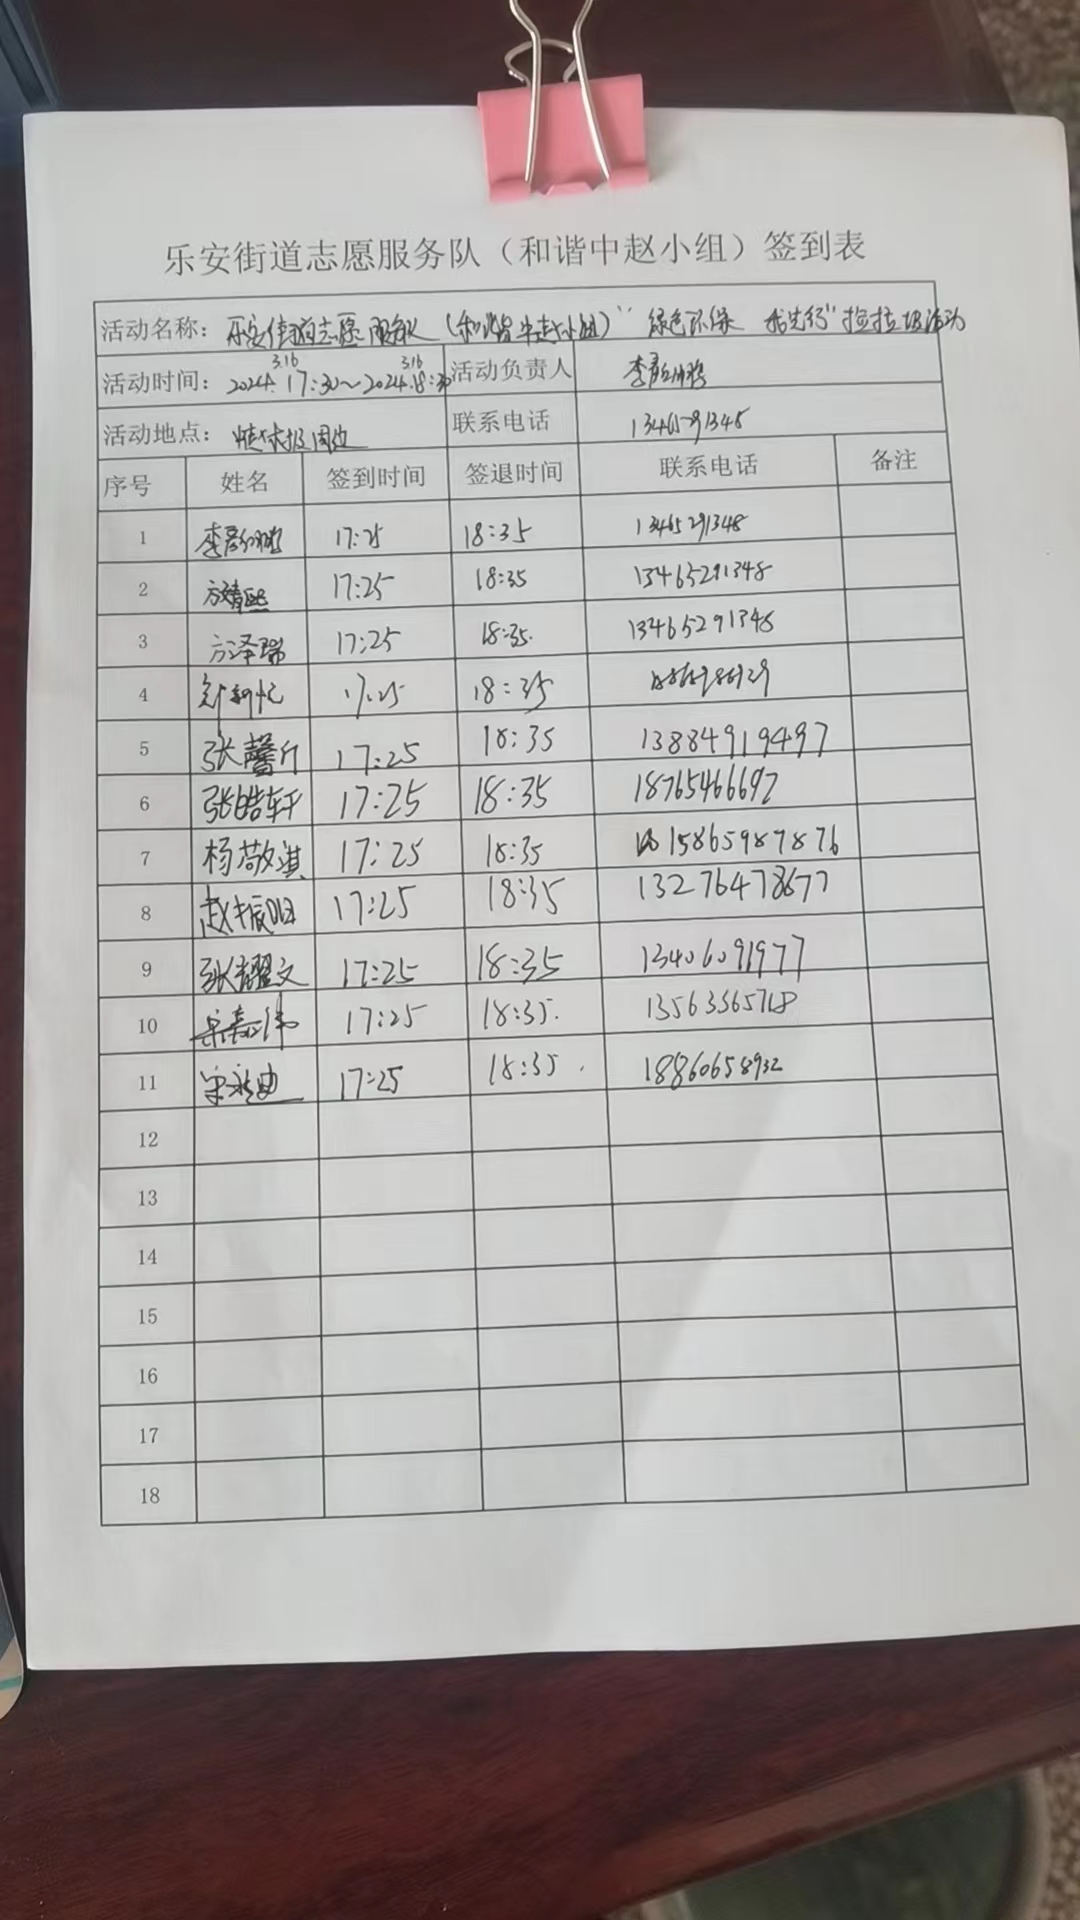 乐安街道志愿服务队（和谐中赵小组）签到表
活动名称：乐安街道志愿服务队（和谐中赵小组）"绿色环保 我先行"捡垃圾活动
活动时间：2024.3.16 17:30～2024.3.16 18:30 活动负责人 李彦
活动地点： 周边 联系电话 13465291348
序号 姓名 签到时间 签退时间 联系电话 备注
1 李彦 17:25 18:35 13465291348
2 方靖熙 17:25 18:35 13465291348
3 方泽瑞 17:25 18:35.
4 17:25 18:35
5 张馨斤 17:25 18:35 13884919497
6 张皓轩 17:25 18:35 18765466692
7 杨敬淇 17:25 18:35 15865987876
8 赵振 17:25 18:35 13276478677
9 张耀文 17:25 18:35 13406091977
10 宋嘉伟 17:25 18:35. 13563365718
11 宋 17:25 18:35. 18860658932
12
13
14
15
16
17
18